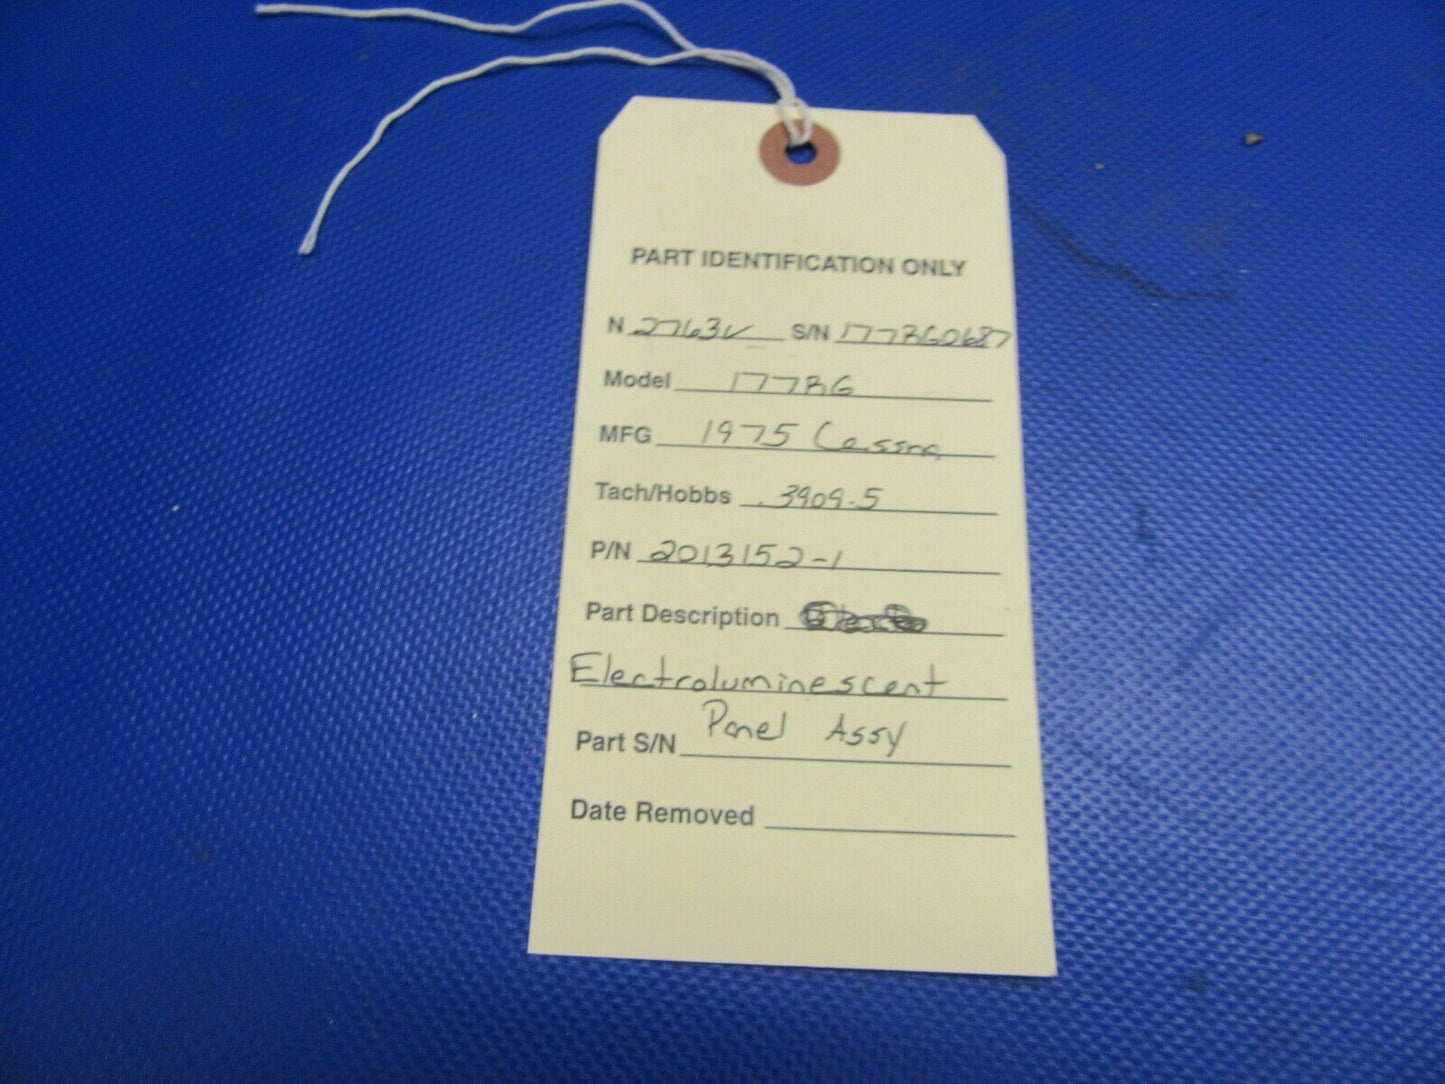 PART IDENTIFICATION ONLY
N 2763V S/N 177RG0687
Model 177RG
MFG 1975 Cessna
Tach/Hobbs 3909.5
P/N 2013152-1
Part Description
Electroluminescent
Panel Assy
Part S/N
Date Removed